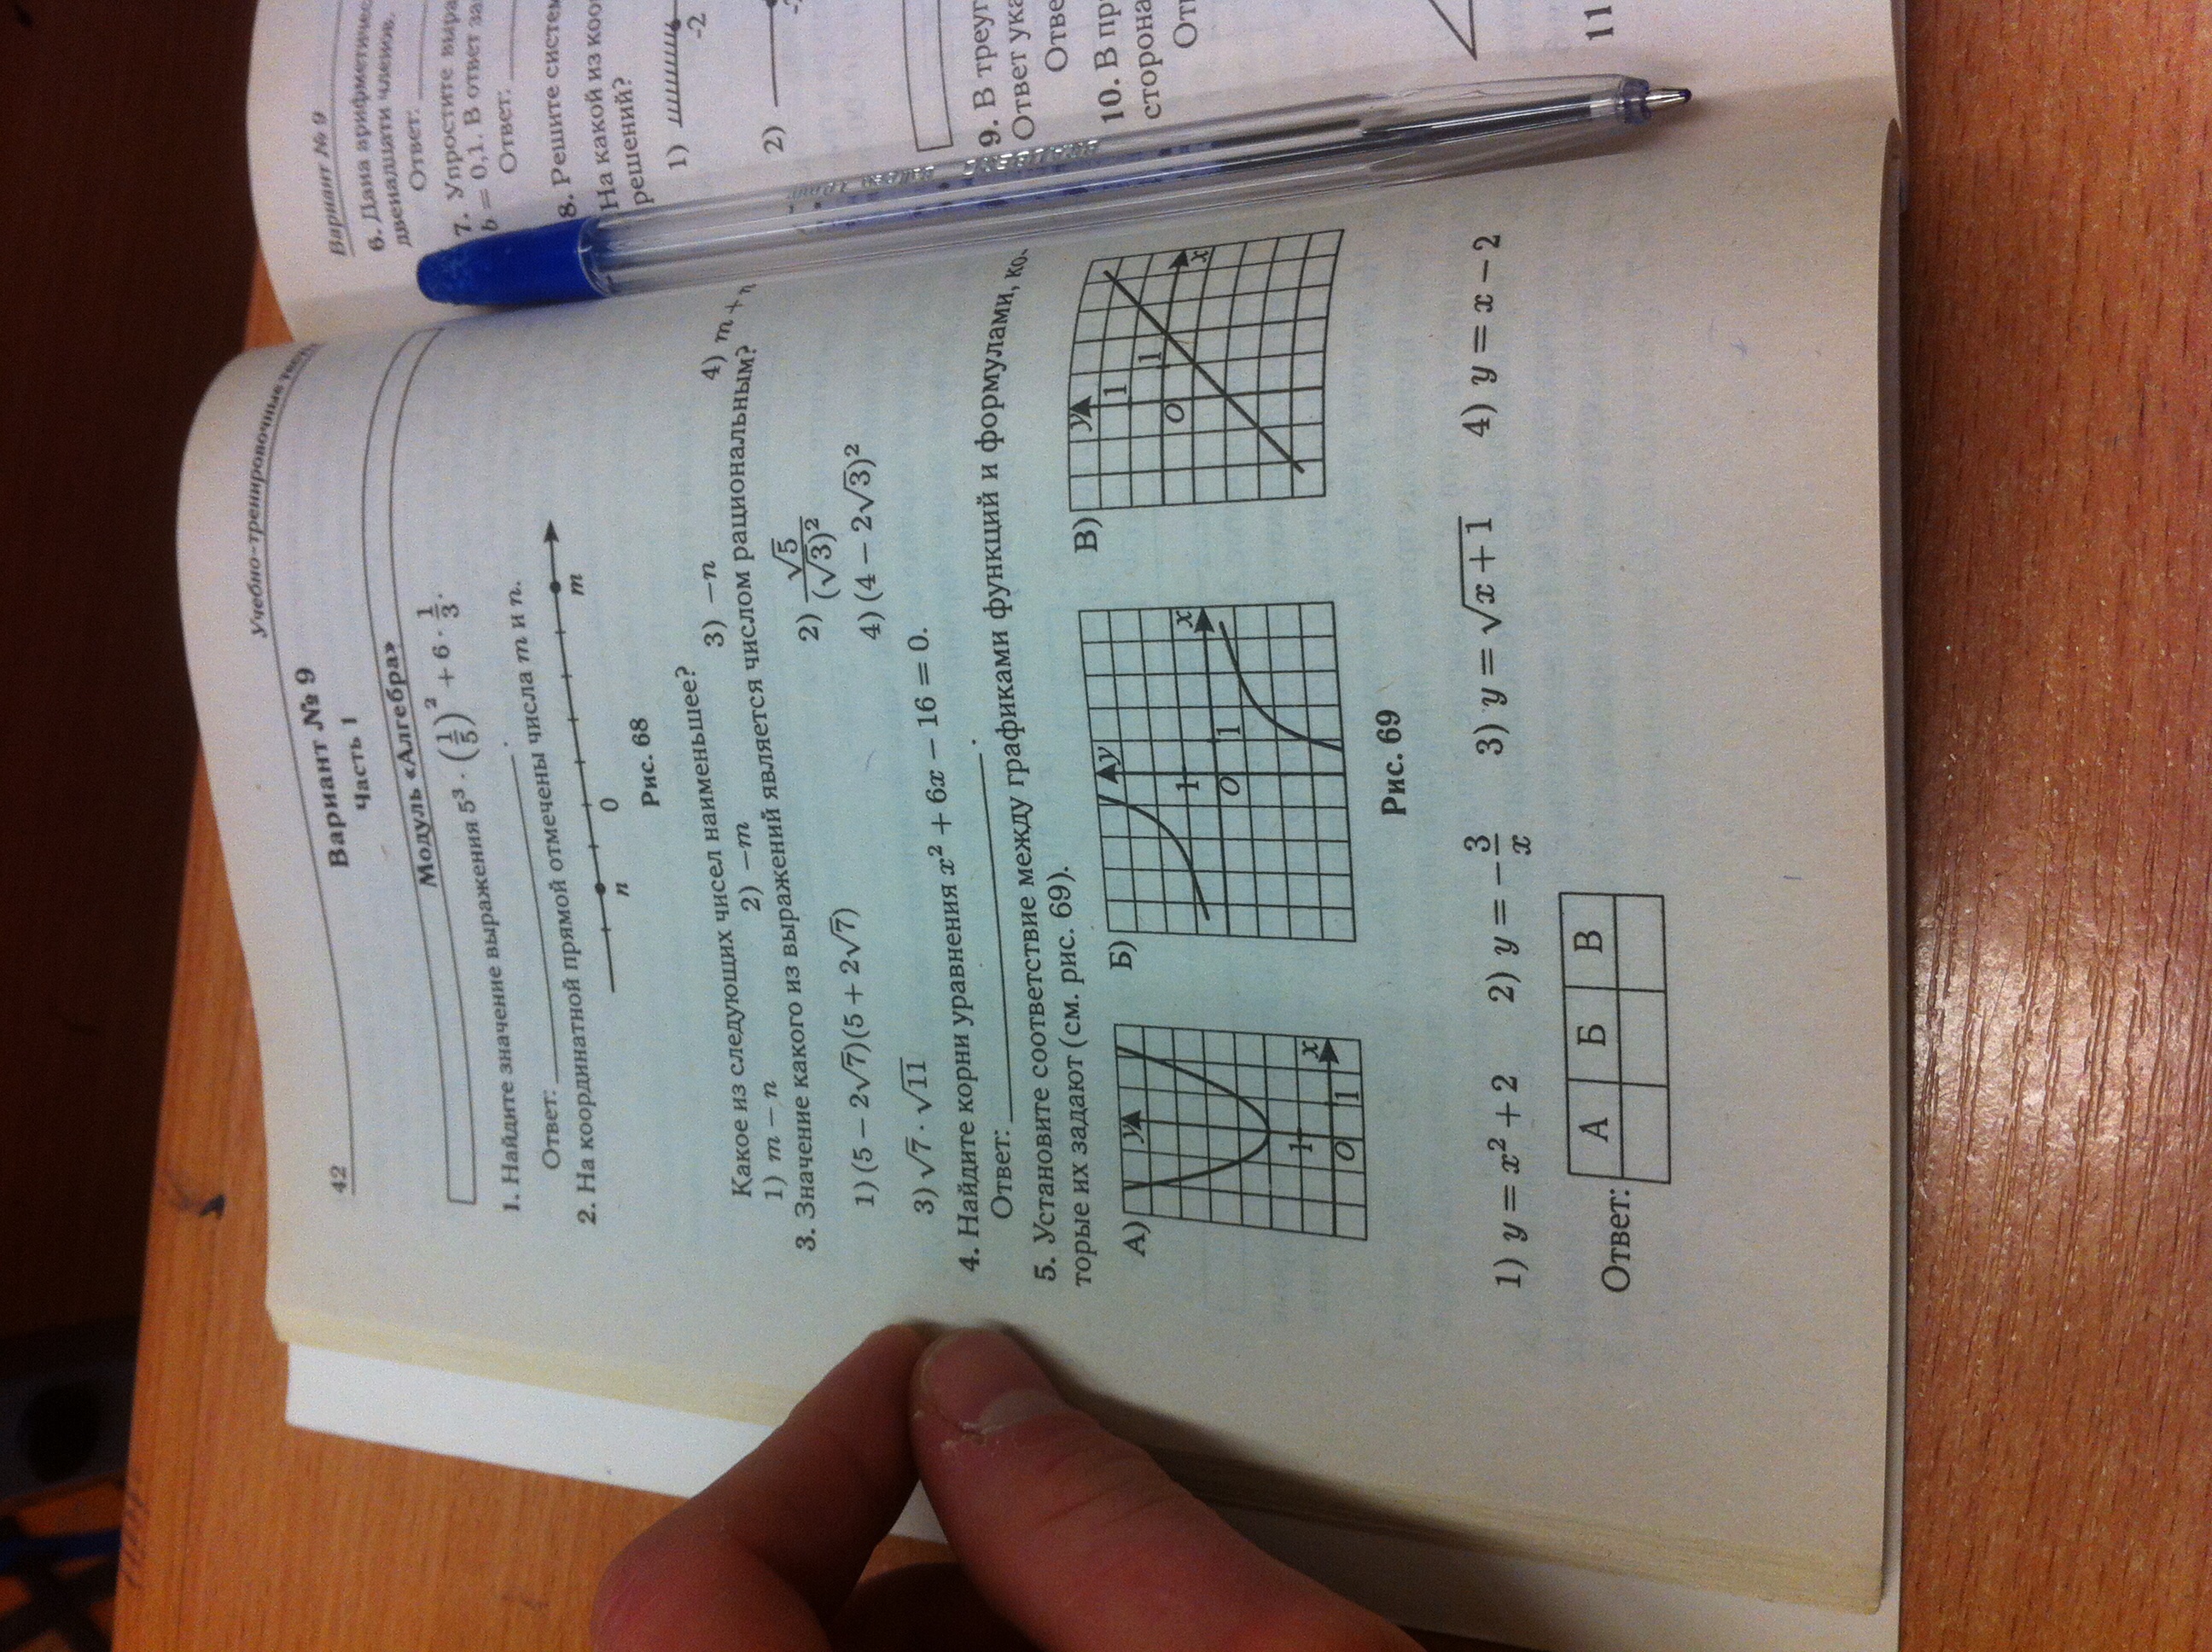 42
Учебно-тренировочные
Вариант № 9
Часть 1
Модуль «Алгебра»
1. Найдите значение выражения 5³ · (1/5)² + 6 · 1/3.
Ответ: ____________.
2. На координатной прямой отмечены числа m и n.
n 0 m
Рис. 68
Какое из следующих чисел наименьшее?
1) m − n 2) −m 3) −n 4) m + n
3. Значение какого из выражений является числом рациональным?
1) (5 − 2√7)(5 + 2√7) 2) √5/(√3)²
3) √7 · √11 4) (4 − 2√3)²
4. Найдите корни уравнения x² + 6x − 16 = 0.
Ответ: ____________.
5. Установите соответствие между графиками функций и формулами, ко-
торые их задают (см. рис. 69).
А) Б) В)
y 1 0 1 x
y 1 0 1 x
y 1 0 1 x
Рис. 69
1) y = x² + 2 2) y = −3/x 3) y = √(x + 1) 4) y = x − 2
Ответ: А Б В
Вариант № 9
6. Дана
двенадцати членов.
Ответ:
7. Упростите
b = 0,1. В ответ
Ответ:
8. Решите
На какой из
решений?
1) -2
2)
9. В
Ответ
10. В
сторона
11